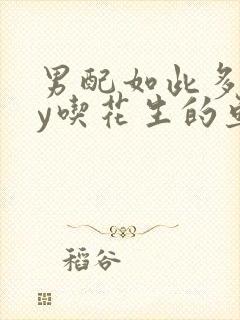 男配如此多
y喫花生的
稻谷